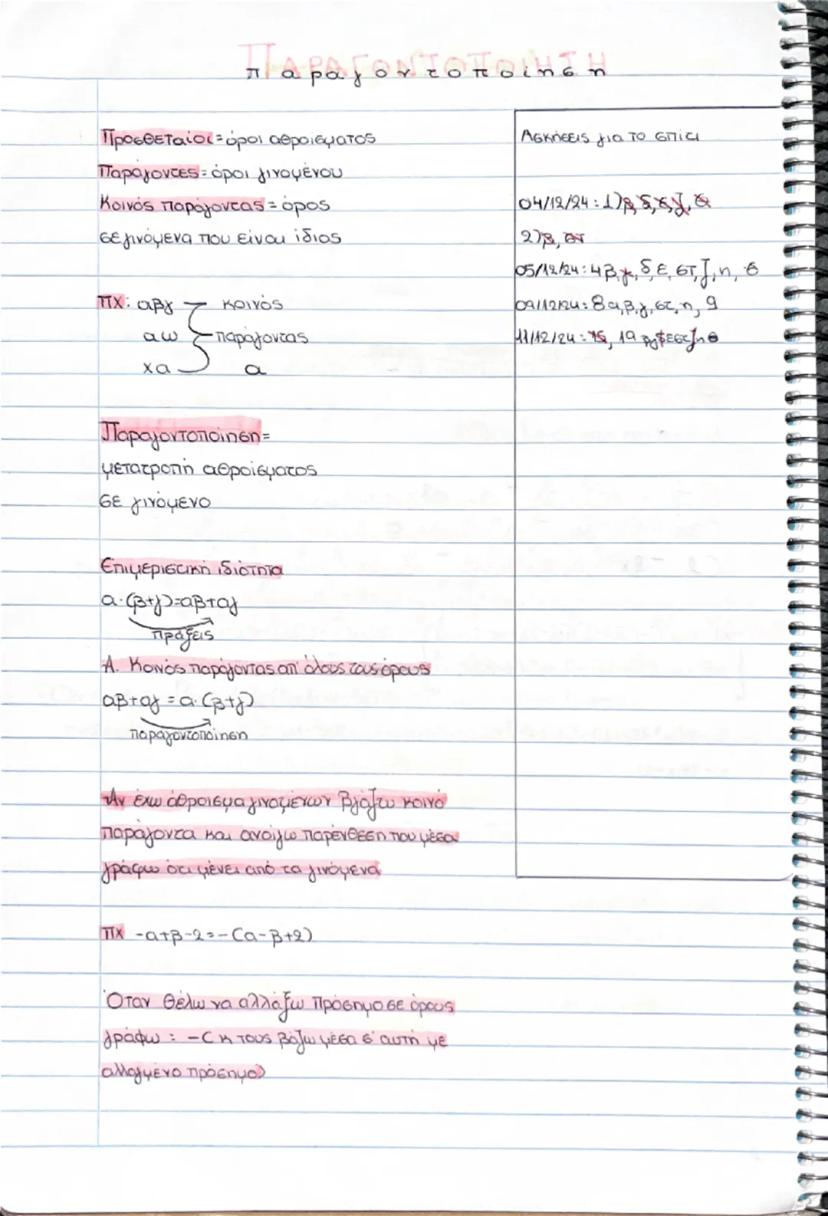 Παραγοντοποίηση
Προσθεταίοι = όροι αθροίσματος
Παράγοντες = όροι γινομένου
Κοινός παράγοντας = όρος
σε γινόμενα που είναι ίδιος
πχ: αβγ κοινός
αω παράγοντας
χα α
Παραγοντοποίηση =
μετατροπή αθροίσματος
σε γινόμενο
Επιμεριστική ιδιότητα
α·(β+γ)=αβ+αγ
πράξεις
Α. Κοινός παράγοντας απ' όλους τους όρους
αβ+αγ = α·(β+γ)
παραγοντοποίηση
Αν έχω άθροισμα γινομένων βγάζω κοινό
παράγοντα και ανοίγω παρένθεση που μέσα
γράφω ότι μένει από τα γινόμενα
πχ -α+β-2=-(α-β+2)
Όταν θέλω να αλλάξω πρόσημο σε όρους
γράφω: -( κ τους βάζω μέσα σ' αυτή με
αλλαγμένο πρόσημο)
Ασκήσεις για το σπίτι
04/12/24: 1)β, δ, ε, ζ,
2)β, στ
05/12/24: 4β, γ, δ, ε, στ, ζ, η, θ
09/12/24: 8α, β, γ, στ, η, 9
11/12/24: 15, 19 βγδεστζηθ